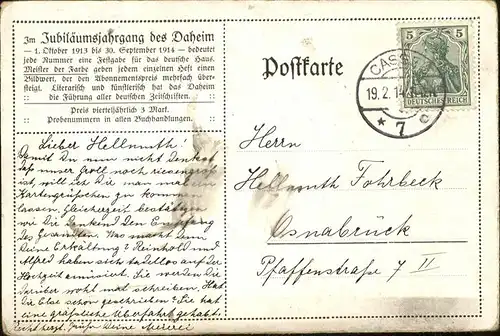 Im Jubiläumsjahrgang des Daheim
— 1. Oktober 1913 bis 30. September 1914 — bedeutet
jede Nummer eine Festgabe für das deutsche Haus.
Meister der Farbe geben jedem einzelnen Heft einen
Bildwert, der den Abonnementspreis mehrfach über-
steigt. Literarisch und künstlerisch hat das Daheim
die Führung aller deutschen Zeitschriften.
Preis vierteljährlich 3 Mark.
Probenummern in allen Buchhandlungen.
Postkarte
5 5
DEUTSCHES REICH
CASSEL
19.2.14
* 7 c
Lieber Hellmuth!
Damit Du nun nicht Denkst
daß unser Groll noch riesengroß
ist, will ich Dir mal ein
Kartengrüßchen zukommen
lassen. Gleichzeitig bestätigen
wir Dir dankend den Empfang
des Gesandten. Was macht denn
Deine Erkältung? Reinhold und
Alfred haben sich tadellos auf der
Hochzeit amüsiert. Sie werden Dir
darüber wohl mal schreiben. Hat
Dir Else schon geschrieben? Sie hat
eine gräßliche Überfahrt gehabt.
herzl. Gruß Deine
Herrn
Hellmuth Fohrbeck
Osnabrück
Pfaffenstraße 7 II